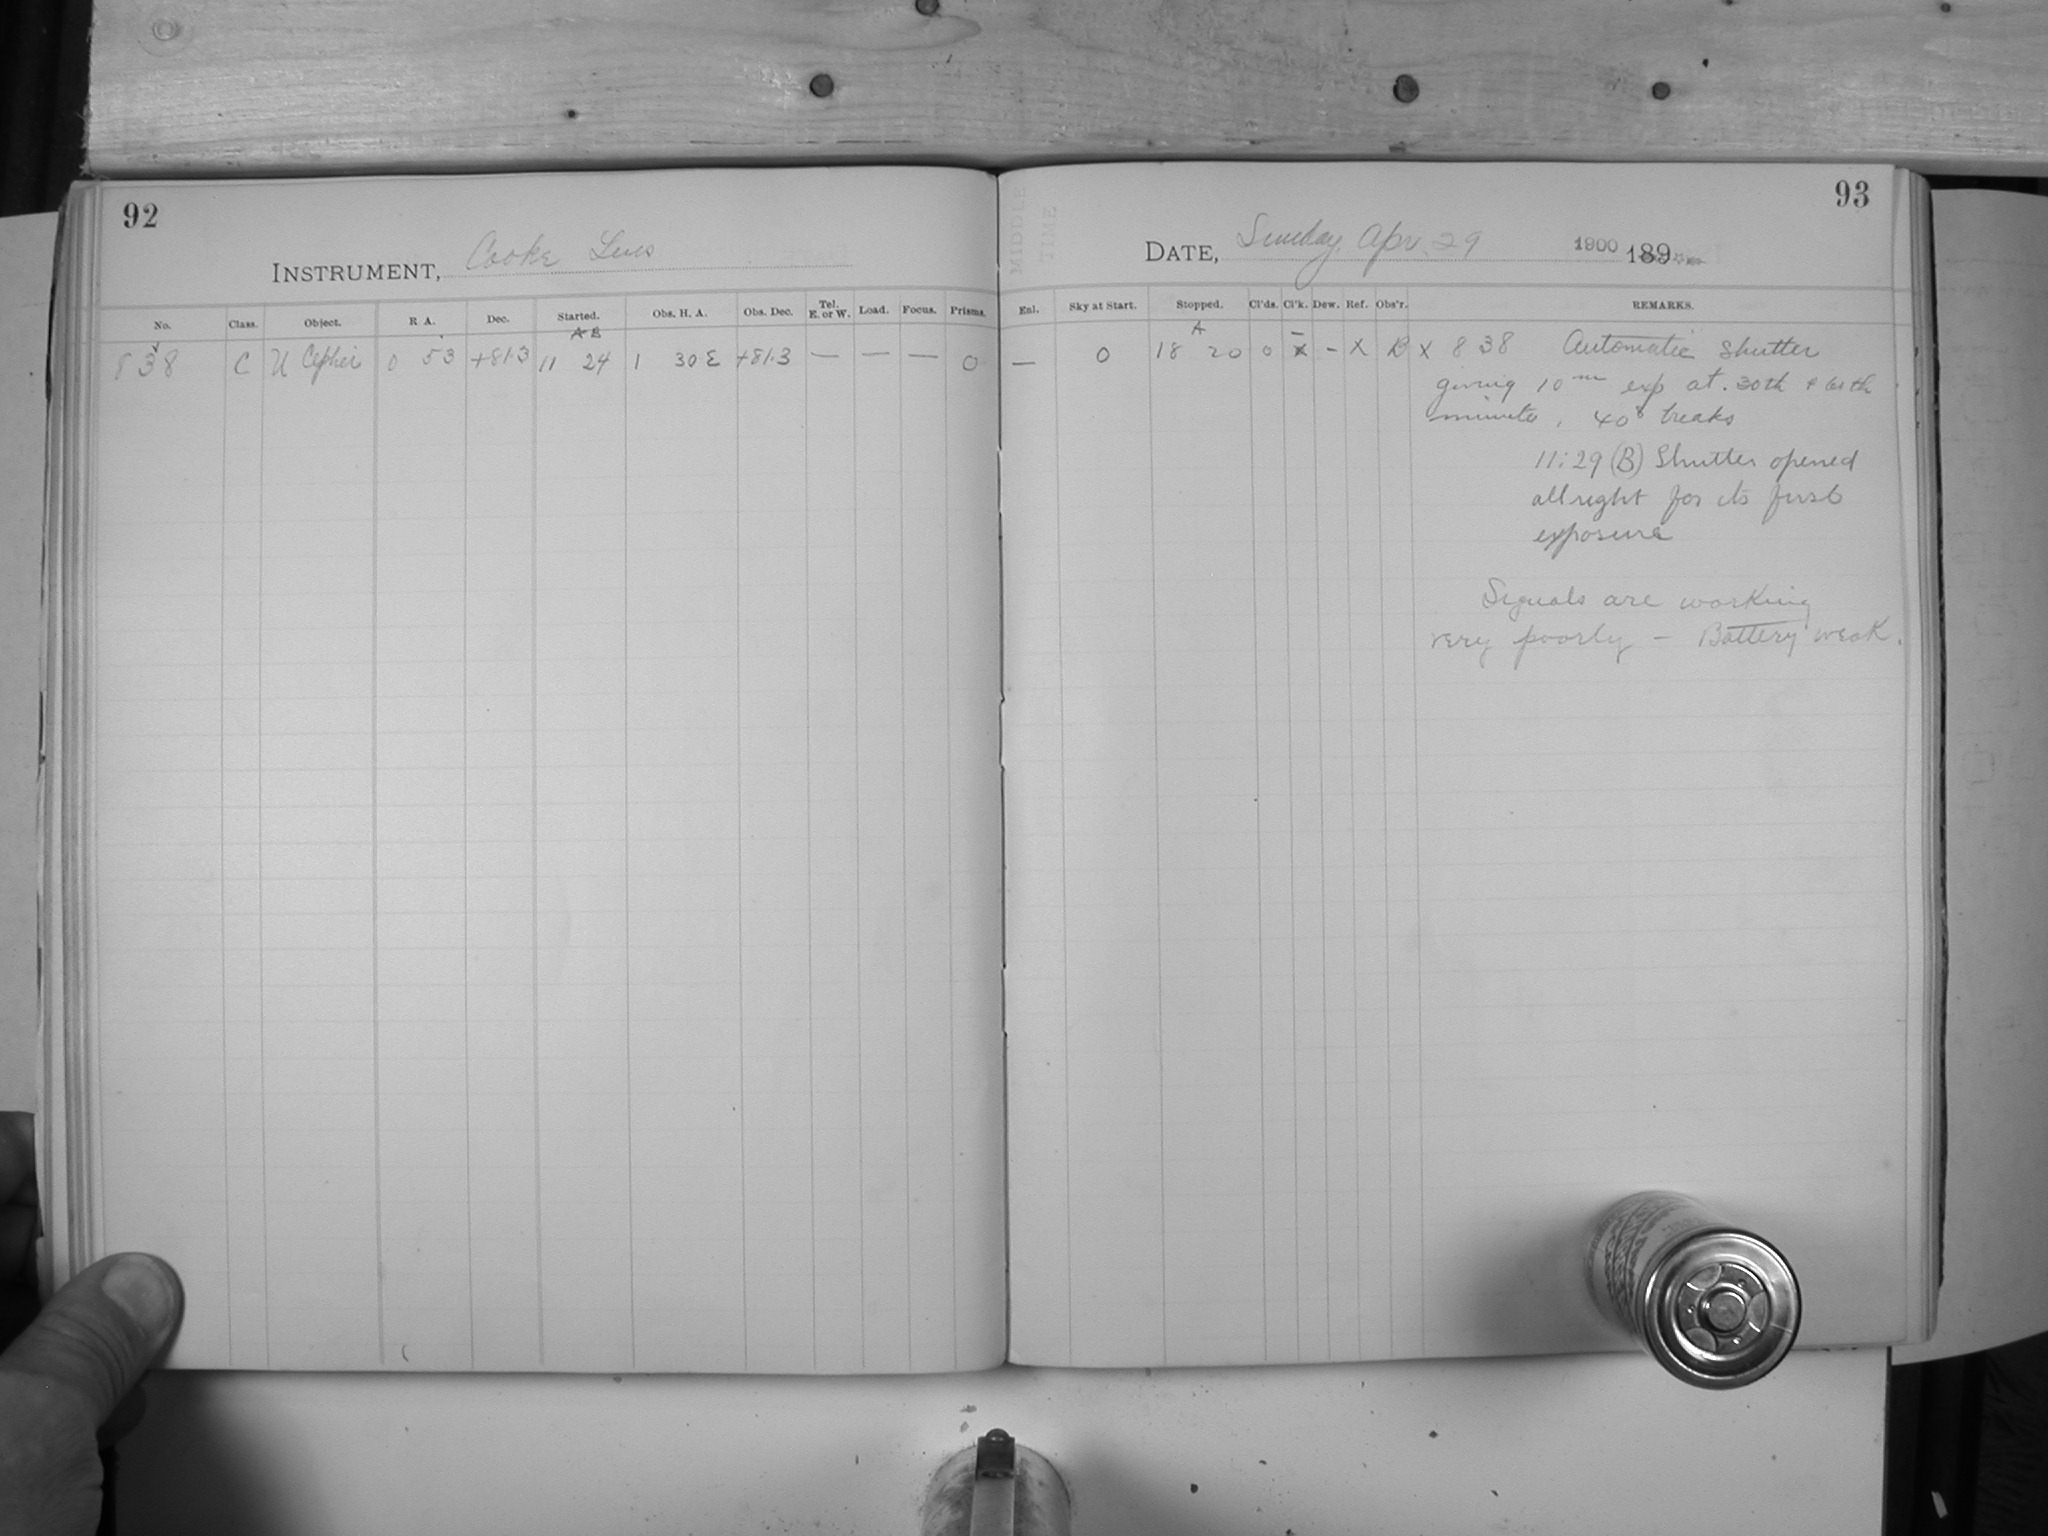 92
INSTRUMENT, Cooke Lens
No. Class. Object. R A. Dec. Started. Obs. H. A. Obs. Dec. Tel. E. or W. Load. Focus. Prisms.
838 C U Cephei 0 53 +81.3 11 24 1 30 E +81.3 — — — 0
93
DATE, Sunday, Apr. 29 1900 189
Enl. Sky at Start. Stopped. Cl'ds. Cl'k. Dew. Ref. Obs'r. REMARKS.
A
— 0 18 20 0 x - x B x 838 Automatic shutter
giving 10 m exp at. 30th + 60th
minute, 40s breaks
11:29 (B) Shutter opened
allright for its first
exposure
Signals are working
very poorly — Battery weak.
MIDDLE
TIME